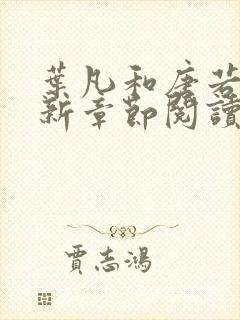 葉凡和唐若
新章節閱讀
賈志鴻